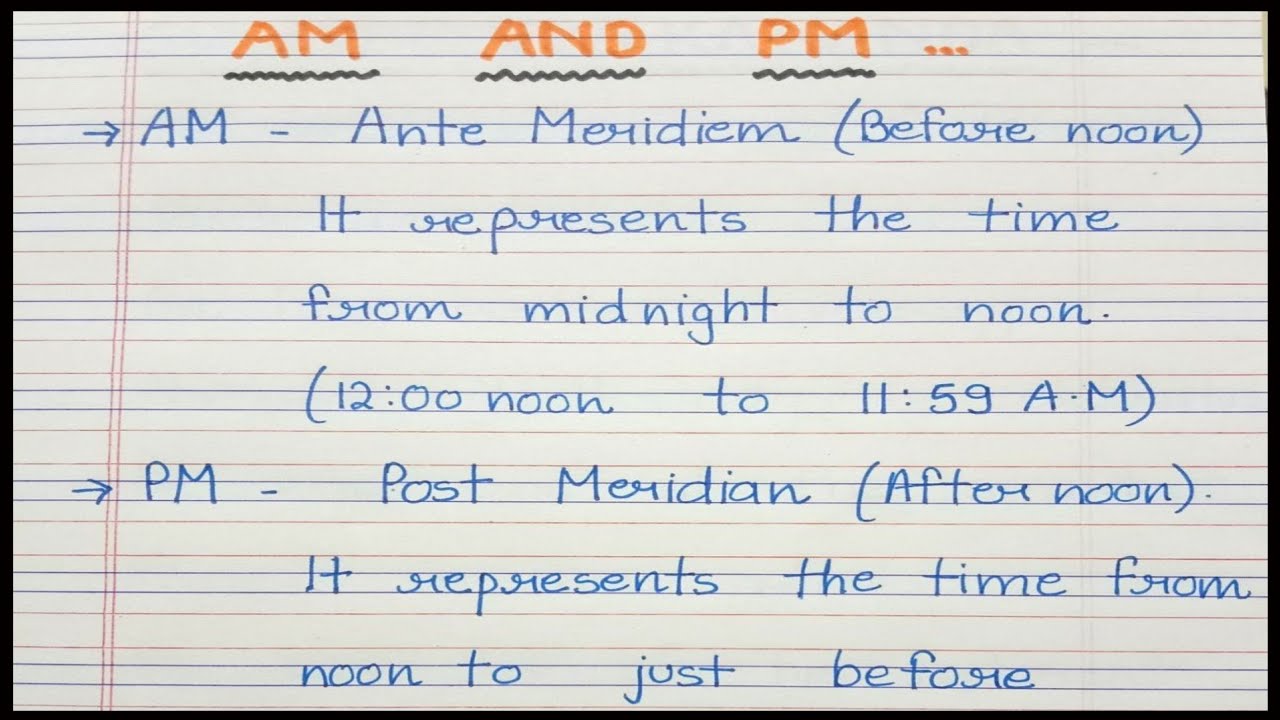 AM AND PM ...
→ AM - Ante Meridiem (Before noon)
It represents the time
from midnight to noon.
(12:00 noon to 11:59 A.M)
→ PM - Post Meridian (After noon).
It represents the time from
noon to just before